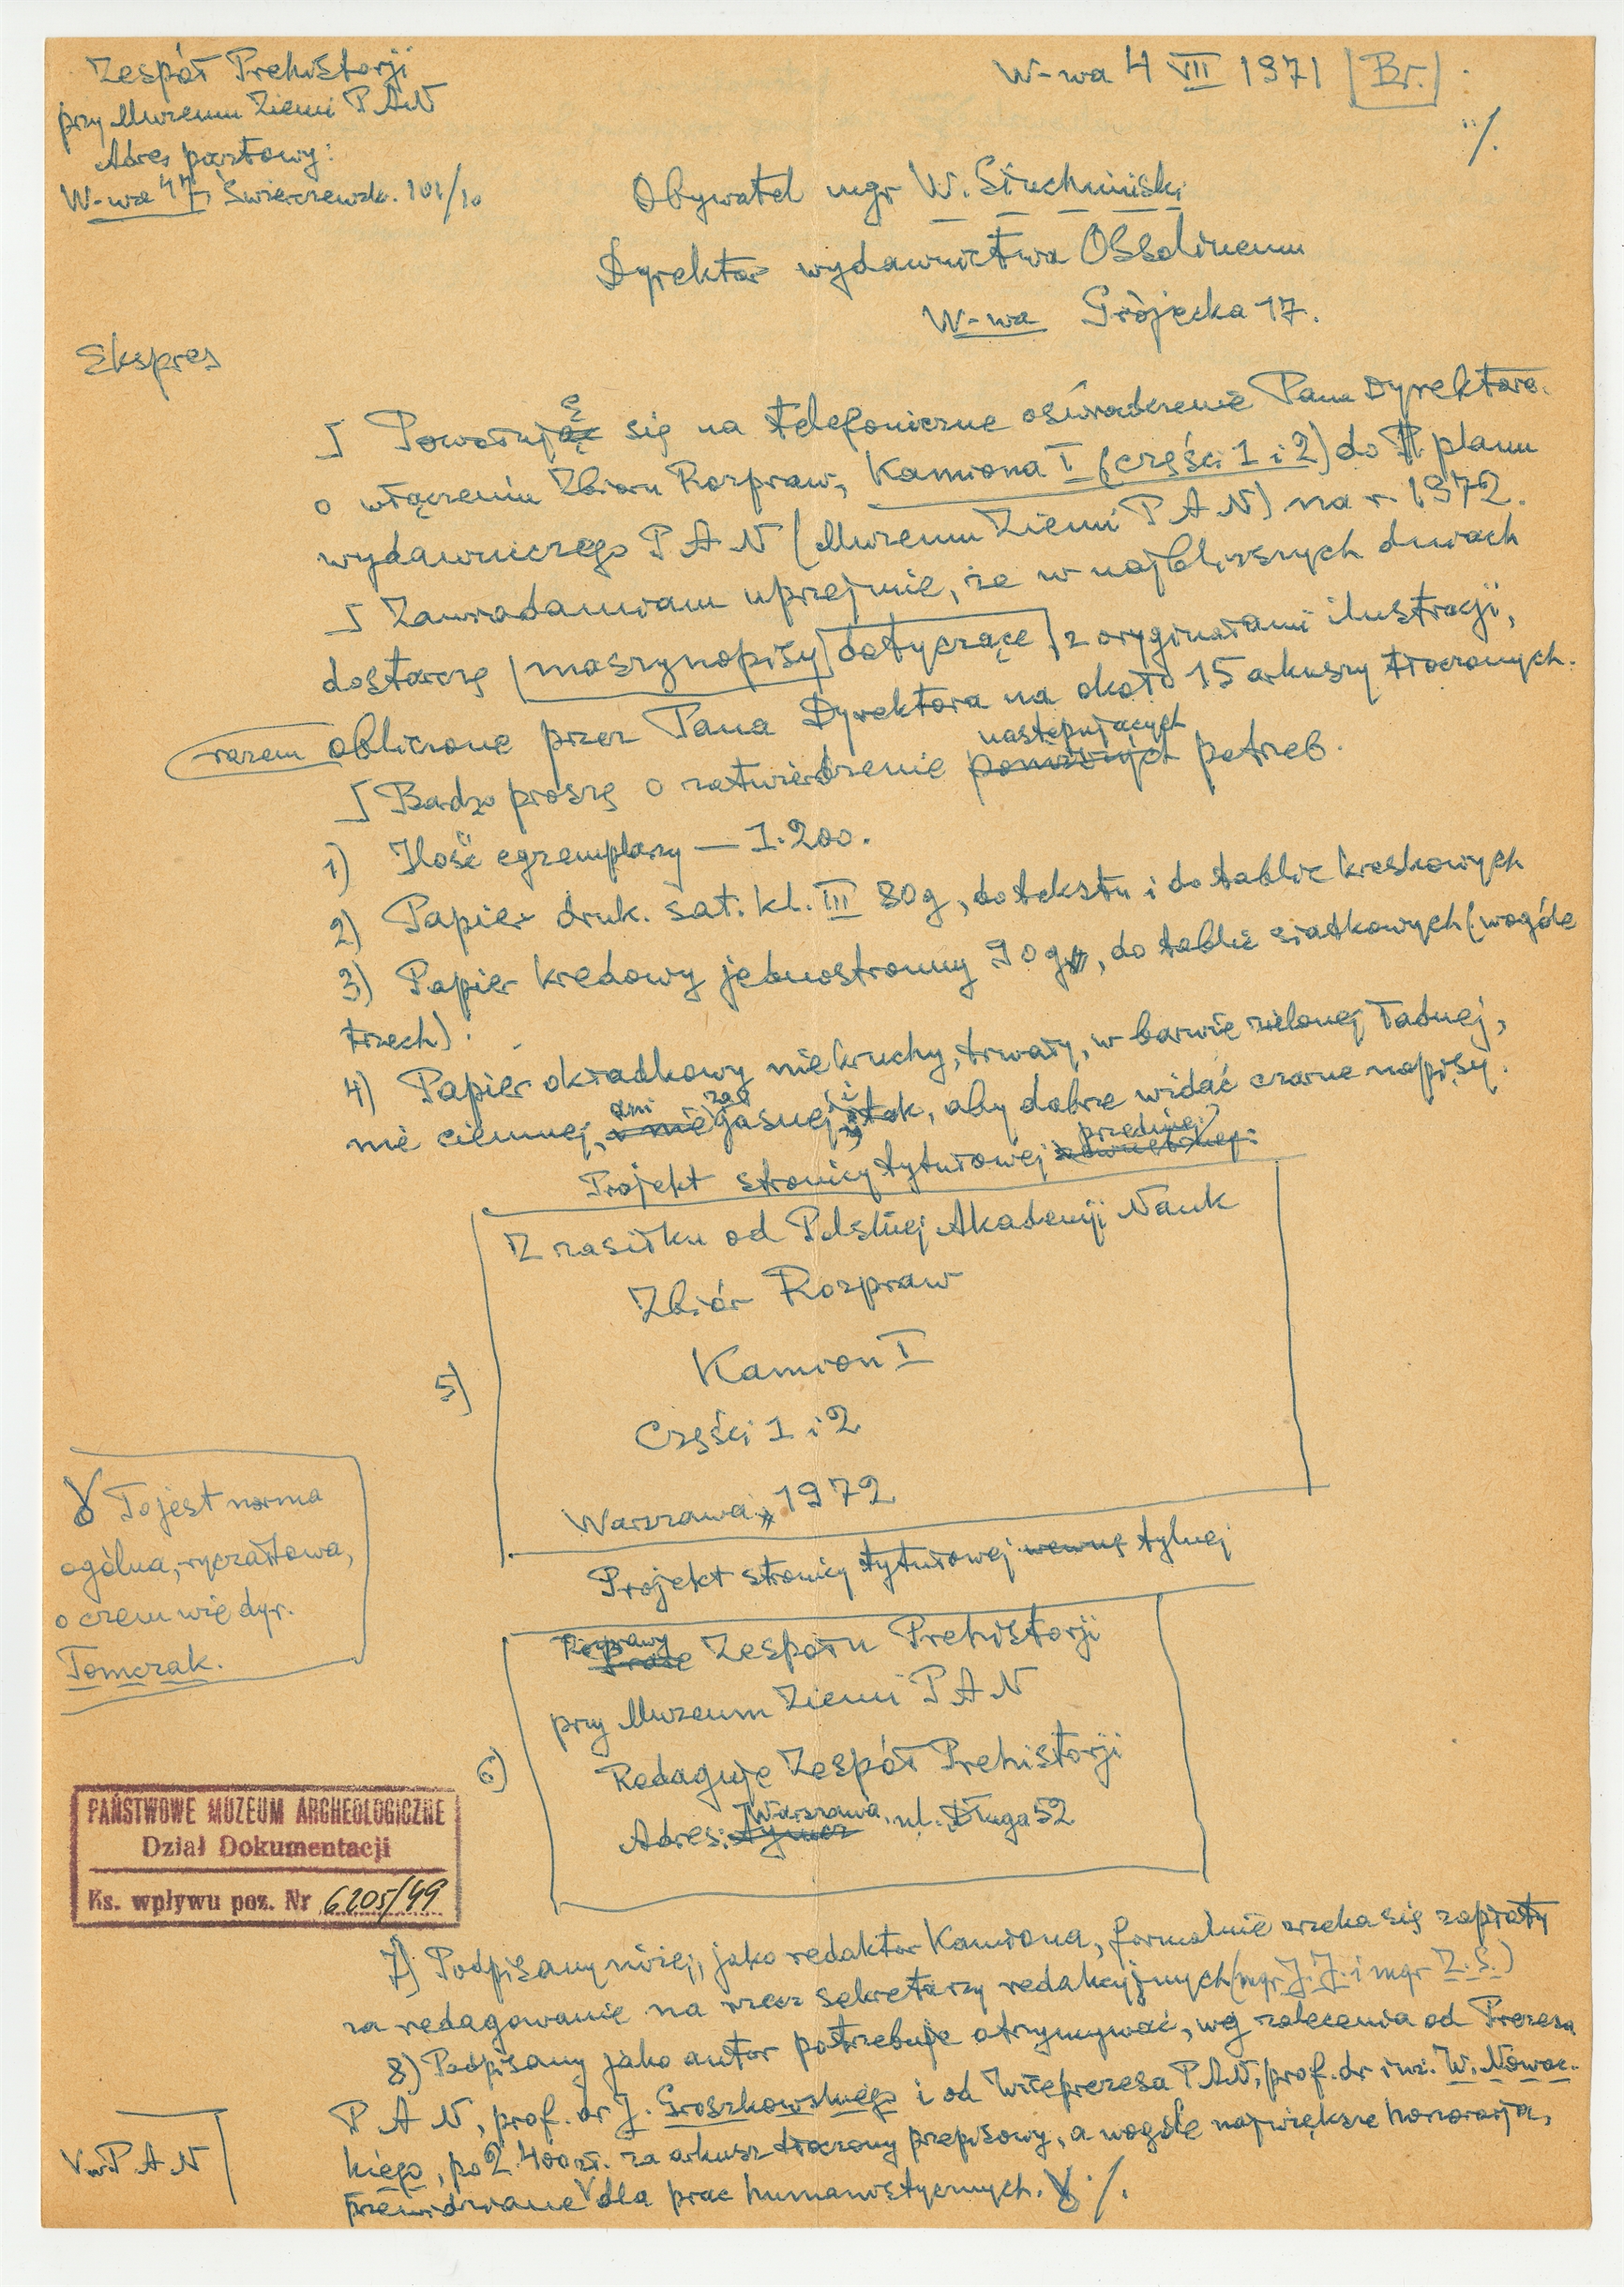 Zespół Prehistorji
przy Muzeum Ziemi P A N
Adres pocztowy:
W-wa 47, Świerczewsk. 101/10
W-wa 4 VII 1971 [Br.]
./.
Obywatel mgr W.
Dyrektor wydawnictwa Ossolineum
W-wa Grójecka 17.
Ekspres
Powołuję się na telefoniczne oświadczenie Pana Dyrektora
o włączeniu Zbioru Rozpraw, Kamiona I (części 1 i 2) do planu
wydawniczego P A N (Muzeum Ziemi P A N) na r. 1972.
Zawiadamiam uprzejmie, że w najbliższych dniach
dostarczę maszynopisy dotyczące z oryginałami ilustracji,
razem obliczone przez Pana Dyrektora na około 15 arkuszy tłoczonych.
Bardzo proszę o zatwierdzenie następujących potrzeb.
1) Ilość egzemplarzy — 1.200.
2) Papier druk. sat. kl. III 80 g, do tekstu i do tablic kreskowych
3) Papier kredowy jednostronny 90 g, do tablic siatkowych (wogóle
trzech).
4) Papier okładkowy niekruchy, trwały, w barwie zielonej ładnej,
nie ciemnej, ani zbyt jasnej, tak, aby dobrze widać czarne napisy.
Projekt stronicy tytułowej przedniej
5)
Z zasiłku od Polskiej Akademji Nauk
Zbiór Rozpraw
Kamion I
Części 1 i 2
Warszawa, 1972
Projekt stronicy tytułowej tylnej
6)
Rozprawy Zespołu Prehistorji
przy Muzeum Ziemi P A N
Redaguje Zespół Prehistorji
Adres: Warszawa, ul. Długa 52
Ɣ To jest norma
ogólna, ryczałtowa,
o czem wie dyr.
Tomczak.
PAŃSTWOWE MUZEUM ARCHEOLOGICZNE
Dział Dokumentacji
Ks. wpływu poz. Nr 6205/49
7) Podpisany niżej, jako redaktor Kamiona, formalnie zrzeka się zapłaty
za redagowanie na rzecz sekretarzy redakcyjnych (mgr J. J. i mgr Z. S.)
8) Podpisany jako autor potrzebuje otrzymywać, wg zalecenia od Prezesa
P A N, prof. dr J. Groszkowskiego i od Wiceprezesa P A N, prof. dr inż. W. Nowac-
kiego, po 2.400 zł. za arkusz tłoczony przepisowy, a wogóle największe honorarja,
przewidziane V dla prac humanistycznych. Ɣ ./.
V w P A N